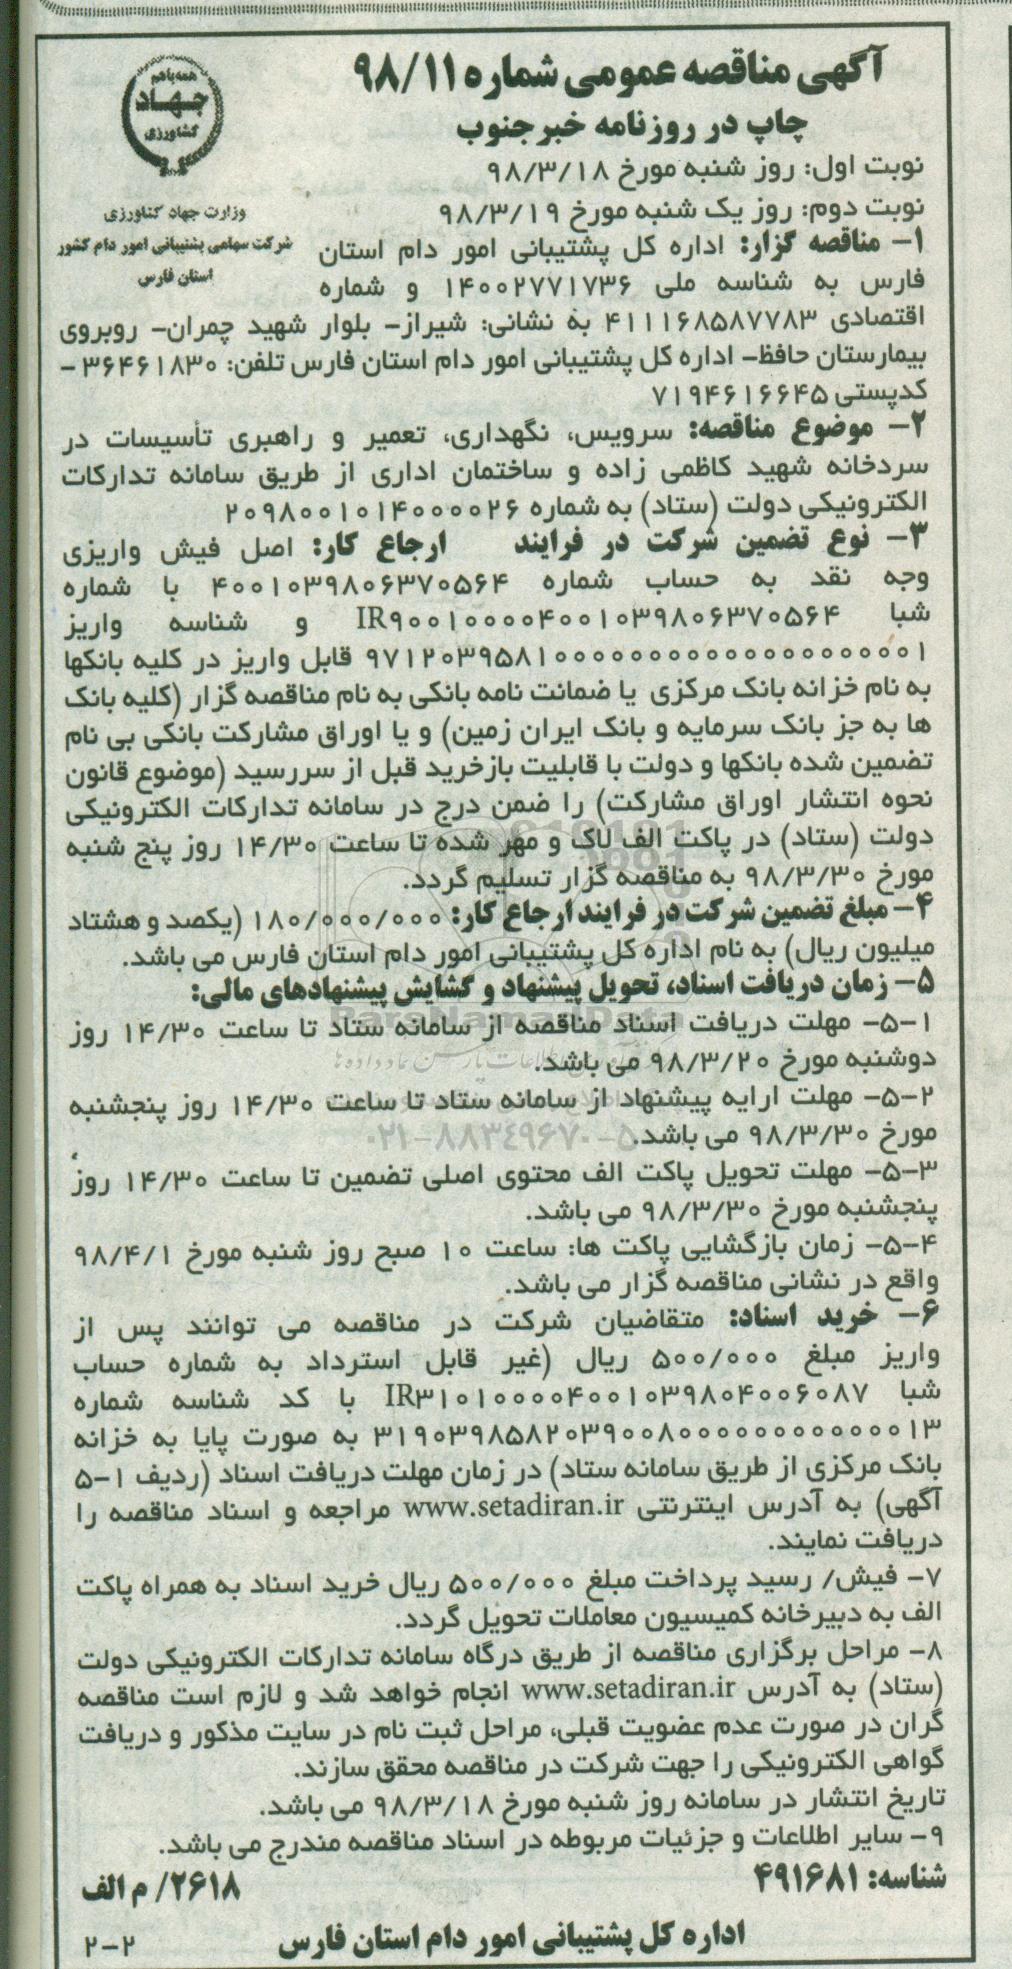 آگهی مناقصه عمومی شماره ۹۸/۱۱
چاپ در روزنامه خبرجنوب
نوبت اول: روز شنبه مورخ ۹۸/۳/۱۸
نوبت دوم: روز یک شنبه مورخ ۹۸/۳/۱۹
همه با هم
جهاد
کشاورزی
وزارت جهاد کشاورزی
شرکت سهامی پشتیبانی امور دام کشور
استان فارس
۱- مناقصه گزار: اداره کل پشتیبانی امور دام استان
فارس به شناسه ملی ۱۴۰۰۲۷۷۱۷۳۶ و شماره
اقتصادی ۴۱۱۱۶۸۵۸۷۷۸۳ به نشانی: شیراز- بلوار شهید چمران- روبروی
بیمارستان حافظ- اداره کل پشتیبانی امور دام استان فارس تلفن: ۳۶۴۶۱۸۳۰ -
کدپستی ۷۱۹۴۶۱۶۶۴۵
۲- موضوع مناقصه: سرویس، نگهداری، تعمیر و راهبری تأسیسات در
سردخانه شهید کاظمی زاده و ساختمان اداری از طریق سامانه تدارکات
الکترونیکی دولت (ستاد) به شماره ۲۰۹۸۰۰۱۰۱۴۰۰۰۰۲۶
۳- نوع تضمین شرکت در فرایند ارجاع کار: اصل فیش واریزی
وجه نقد به حساب شماره ۴۰۰۱۰۳۹۸۰۶۳۷۰۵۶۴ با شماره
شبا IR۹۰۰۱۰۰۰۰۴۰۰۱۰۳۹۸۰۶۳۷۰۵۶۴ و شناسه واریز
۹۷۱۲۰۳۹۵۸۱۰۰۰۰۰۰۰۰۰۰۰۰۰۰۰۰۰۰۰۱ قابل واریز در کلیه بانکها
به نام خزانه بانک مرکزی یا ضمانت نامه بانکی به نام مناقصه گزار (کلیه بانک
ها به جز بانک سرمایه و بانک ایران زمین) و یا اوراق مشارکت بانکی بی نام
تضمین شده بانکها و دولت با قابلیت بازخرید قبل از سررسید (موضوع قانون
نحوه انتشار اوراق مشارکت) را ضمن درج در سامانه تدارکات الکترونیکی
دولت (ستاد) در پاکت الف لاک و مهر شده تا ساعت ۱۴/۳۰ روز پنج شنبه
مورخ ۹۸/۳/۳۰ به مناقصه گزار تسلیم گردد.
۴- مبلغ تضمین شرکت در فرایند ارجاع کار: ۱۸۰/۰۰۰/۰۰۰ (یکصد و هشتاد
میلیون ریال) به نام اداره کل پشتیبانی امور دام استان فارس می باشد.
۵- زمان دریافت اسناد، تحویل پیشنهاد و گشایش پیشنهادهای مالی:
ParsNamadData
۵-۱- مهلت دریافت اسناد مناقصه از سامانه ستاد تا ساعت ۱۴/۳۰ روز
دوشنبه مورخ ۹۸/۳/۲۰ می باشد.
۵-۲- مهلت ارایه پیشنهاد از سامانه ستاد تا ساعت ۱۴/۳۰ روز پنجشنبه
مورخ ۹۸/۳/۳۰ می باشد.
۰۲۱-۸۸۳۴۹۶۷۰-۵
۵-۳- مهلت تحویل پاکت الف محتوی اصلی تضمین تا ساعت ۱۴/۳۰ روز
پنجشنبه مورخ ۹۸/۳/۳۰ می باشد.
۵-۴- زمان بازگشایی پاکت ها: ساعت ۱۰ صبح روز شنبه مورخ ۹۸/۴/۱
واقع در نشانی مناقصه گزار می باشد.
۶- خرید اسناد: متقاضیان شرکت در مناقصه می توانند پس از
واریز مبلغ ۵۰۰/۰۰۰ ریال (غیر قابل استرداد به شماره حساب
شبا IR۳۱۰۱۰۰۰۰۴۰۰۱۰۳۹۸۰۴۰۰۶۰۸۷ با کد شناسه شماره
۳۱۹۰۳۹۸۵۸۲۰۳۹۰۰۸۰۰۰۰۰۰۰۰۰۰۰۰۱۳ به صورت پایا به خزانه
بانک مرکزی از طریق سامانه ستاد) در زمان مهلت دریافت اسناد (ردیف ۱-۵
آگهی) به آدرس اینترنتی www.setadiran.ir مراجعه و اسناد مناقصه را
دریافت نمایند.
۷- فیش/ رسید پرداخت مبلغ ۵۰۰/۰۰۰ ریال خرید اسناد به همراه پاکت
الف به دبیرخانه کمیسیون معاملات تحویل گردد.
۸- مراحل برگزاری مناقصه از طریق درگاه سامانه تدارکات الکترونیکی دولت
(ستاد) به آدرس www.setadiran.ir انجام خواهد شد و لازم است مناقصه
گران در صورت عدم عضویت قبلی، مراحل ثبت نام در سایت مذکور و دریافت
گواهی الکترونیکی را جهت شرکت در مناقصه محقق سازند.
تاریخ انتشار در سامانه روز شنبه مورخ ۹۸/۳/۱۸ می باشد.
۹- سایر اطلاعات و جزئیات مربوطه در اسناد مناقصه مندرج می باشد.
شناسه: ۴۹۱۶۸۱
۲۶۱۸/ م الف
اداره کل پشتیبانی امور دام استان فارس
۲-۲